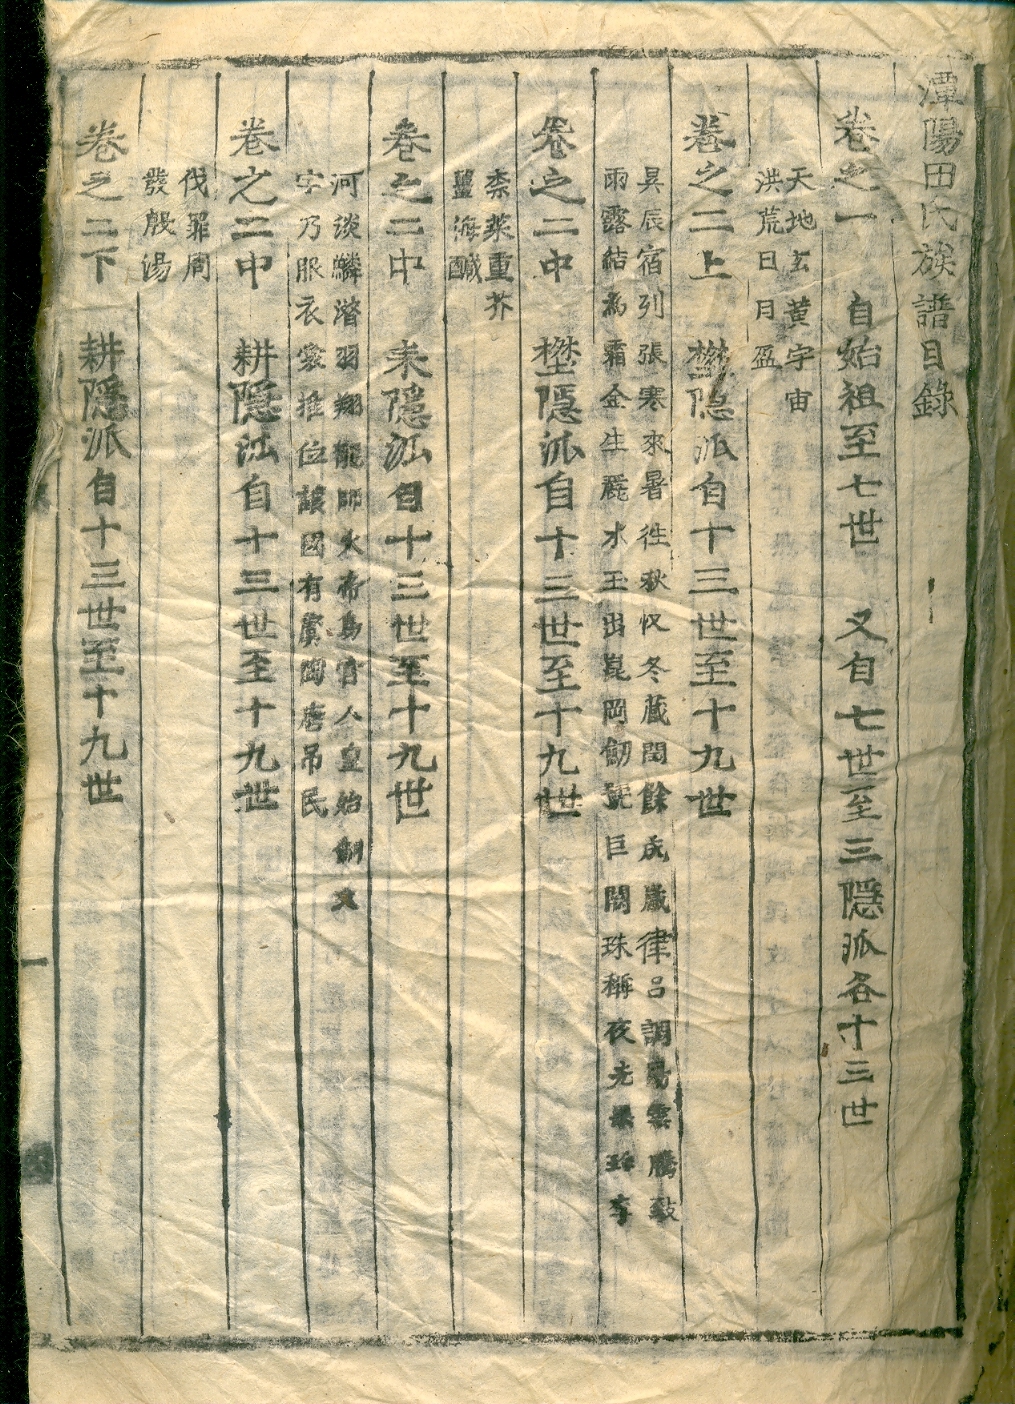 潭陽田氏族譜目錄
卷之一　自始祖至七世　又自七世至三隱派各十三世
天地玄黃宇宙
洪荒日月盈
卷之二上　壄隱派自十三世至十九世
昃辰宿列張寒來暑徃秋收冬藏閏餘成歲律呂調陽雲騰致
雨露結爲霜金生麗水玉出崑岡劒號巨闕珠稱夜光果珎李
卷之二中　壄隱派自十三世至十九世
柰菜重芥
薑海醎
卷之二中　耒隱派自十三世至十九世
河淡鱗潛羽翔龍師火帝鳥官人皇始制文
字乃服衣裳推位讓國有虞陶唐吊民
卷之二中　耕隱派自十三世至十九世
伐罪周
發殷湯
卷之二下　耕隱派自十三世至十九世